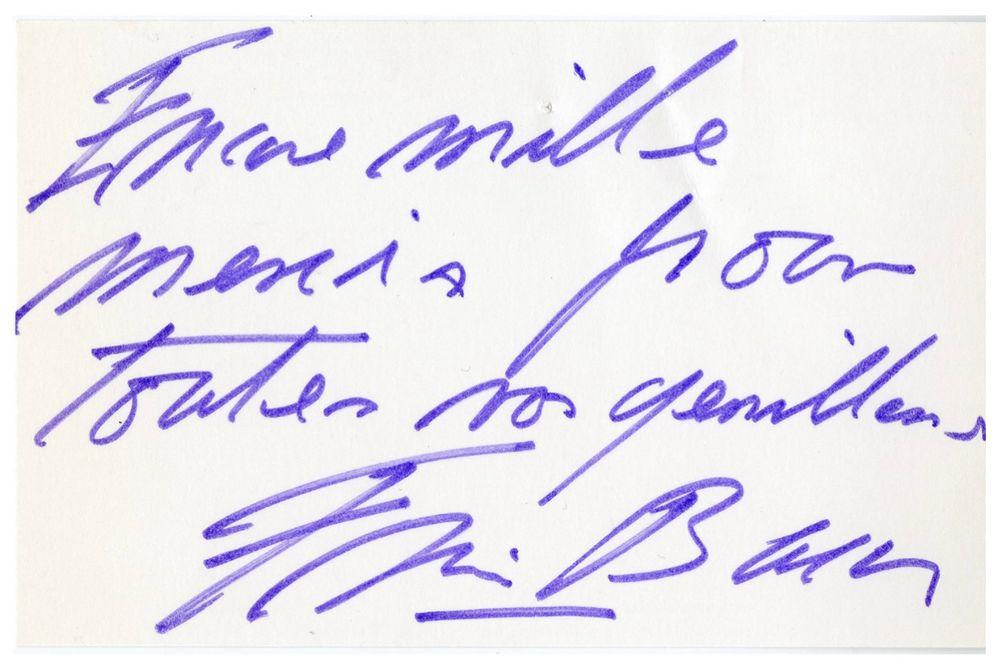 Encore mille
mercis pour
toutes vos gentillesses